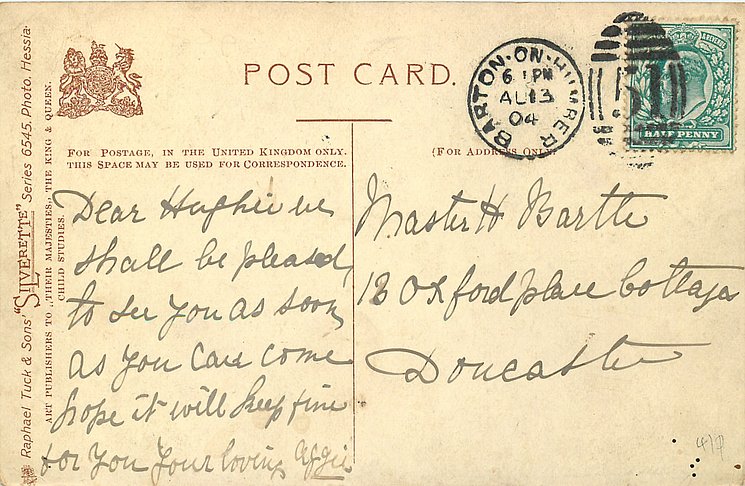 POST CARD.
BARTON-ON-HUMBER
6 PM
AU 13
04
HALF PENNY
FOR POSTAGE, IN THE UNITED KINGDOM ONLY.
THIS SPACE MAY BE USED FOR CORRESPONDENCE.
(FOR ADDRESS ONLY.
Dear Hughie we
shall be pleased
to see you as soon
as you can come
hope it will keep fine
for you your loving
Master H Bartle
18 Oxford place Cottages
Doncaster
4/9
Raphael Tuck & Sons' "SILVERETTE" Series 6545. Photo. Hessia.
ART PUBLISHERS TO „THEIR MAJESTIES„ THE KING & QUEEN.
CHILD STUDIES.